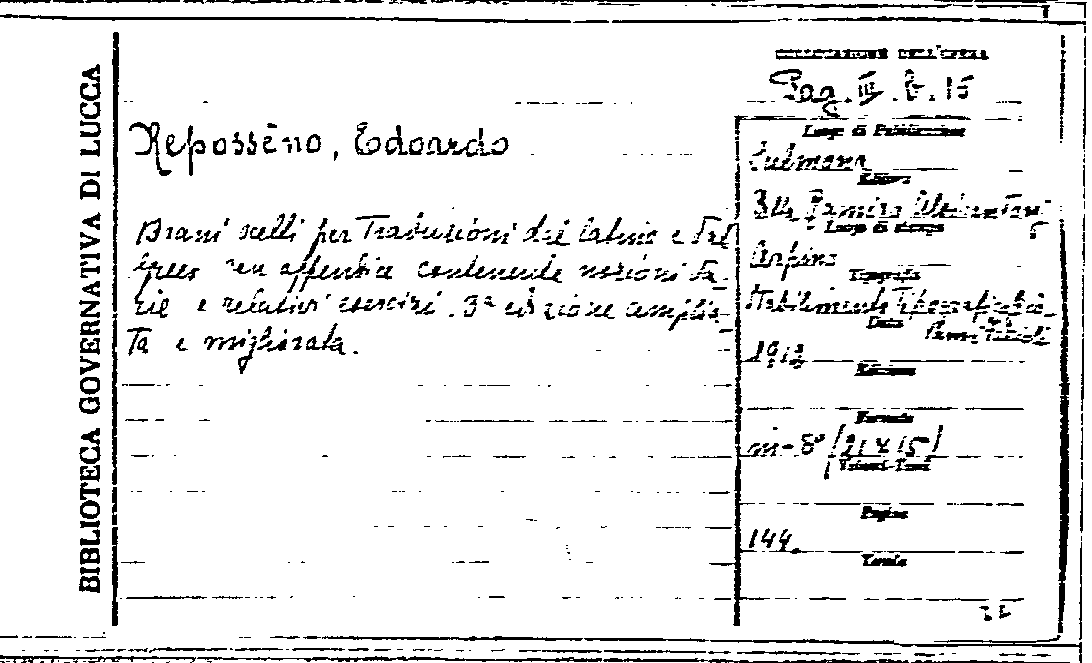 BIBLIOTECA GOVERNATIVA DI LUCCA
COLLOCAZIONE DELL'OPERA
Pag. III. b. 15
Repossèno, Edoardo
Brani scelti per Traduzioni dal latino e dal
greco con appendice contenente nozioni va-
rie e relativi esercizi. 3ª edizione amplia-
ta e migliorata.
Luogo di Pubblicazione
Sulmona
Editore
Luogo di stampa
Arpino
Tipografia
Stabilimento Tipografico
Data
1913
Edizione
Formato
in-8° (21 x 15)
Volumi-Tomi
Pagine
144.
Tavole